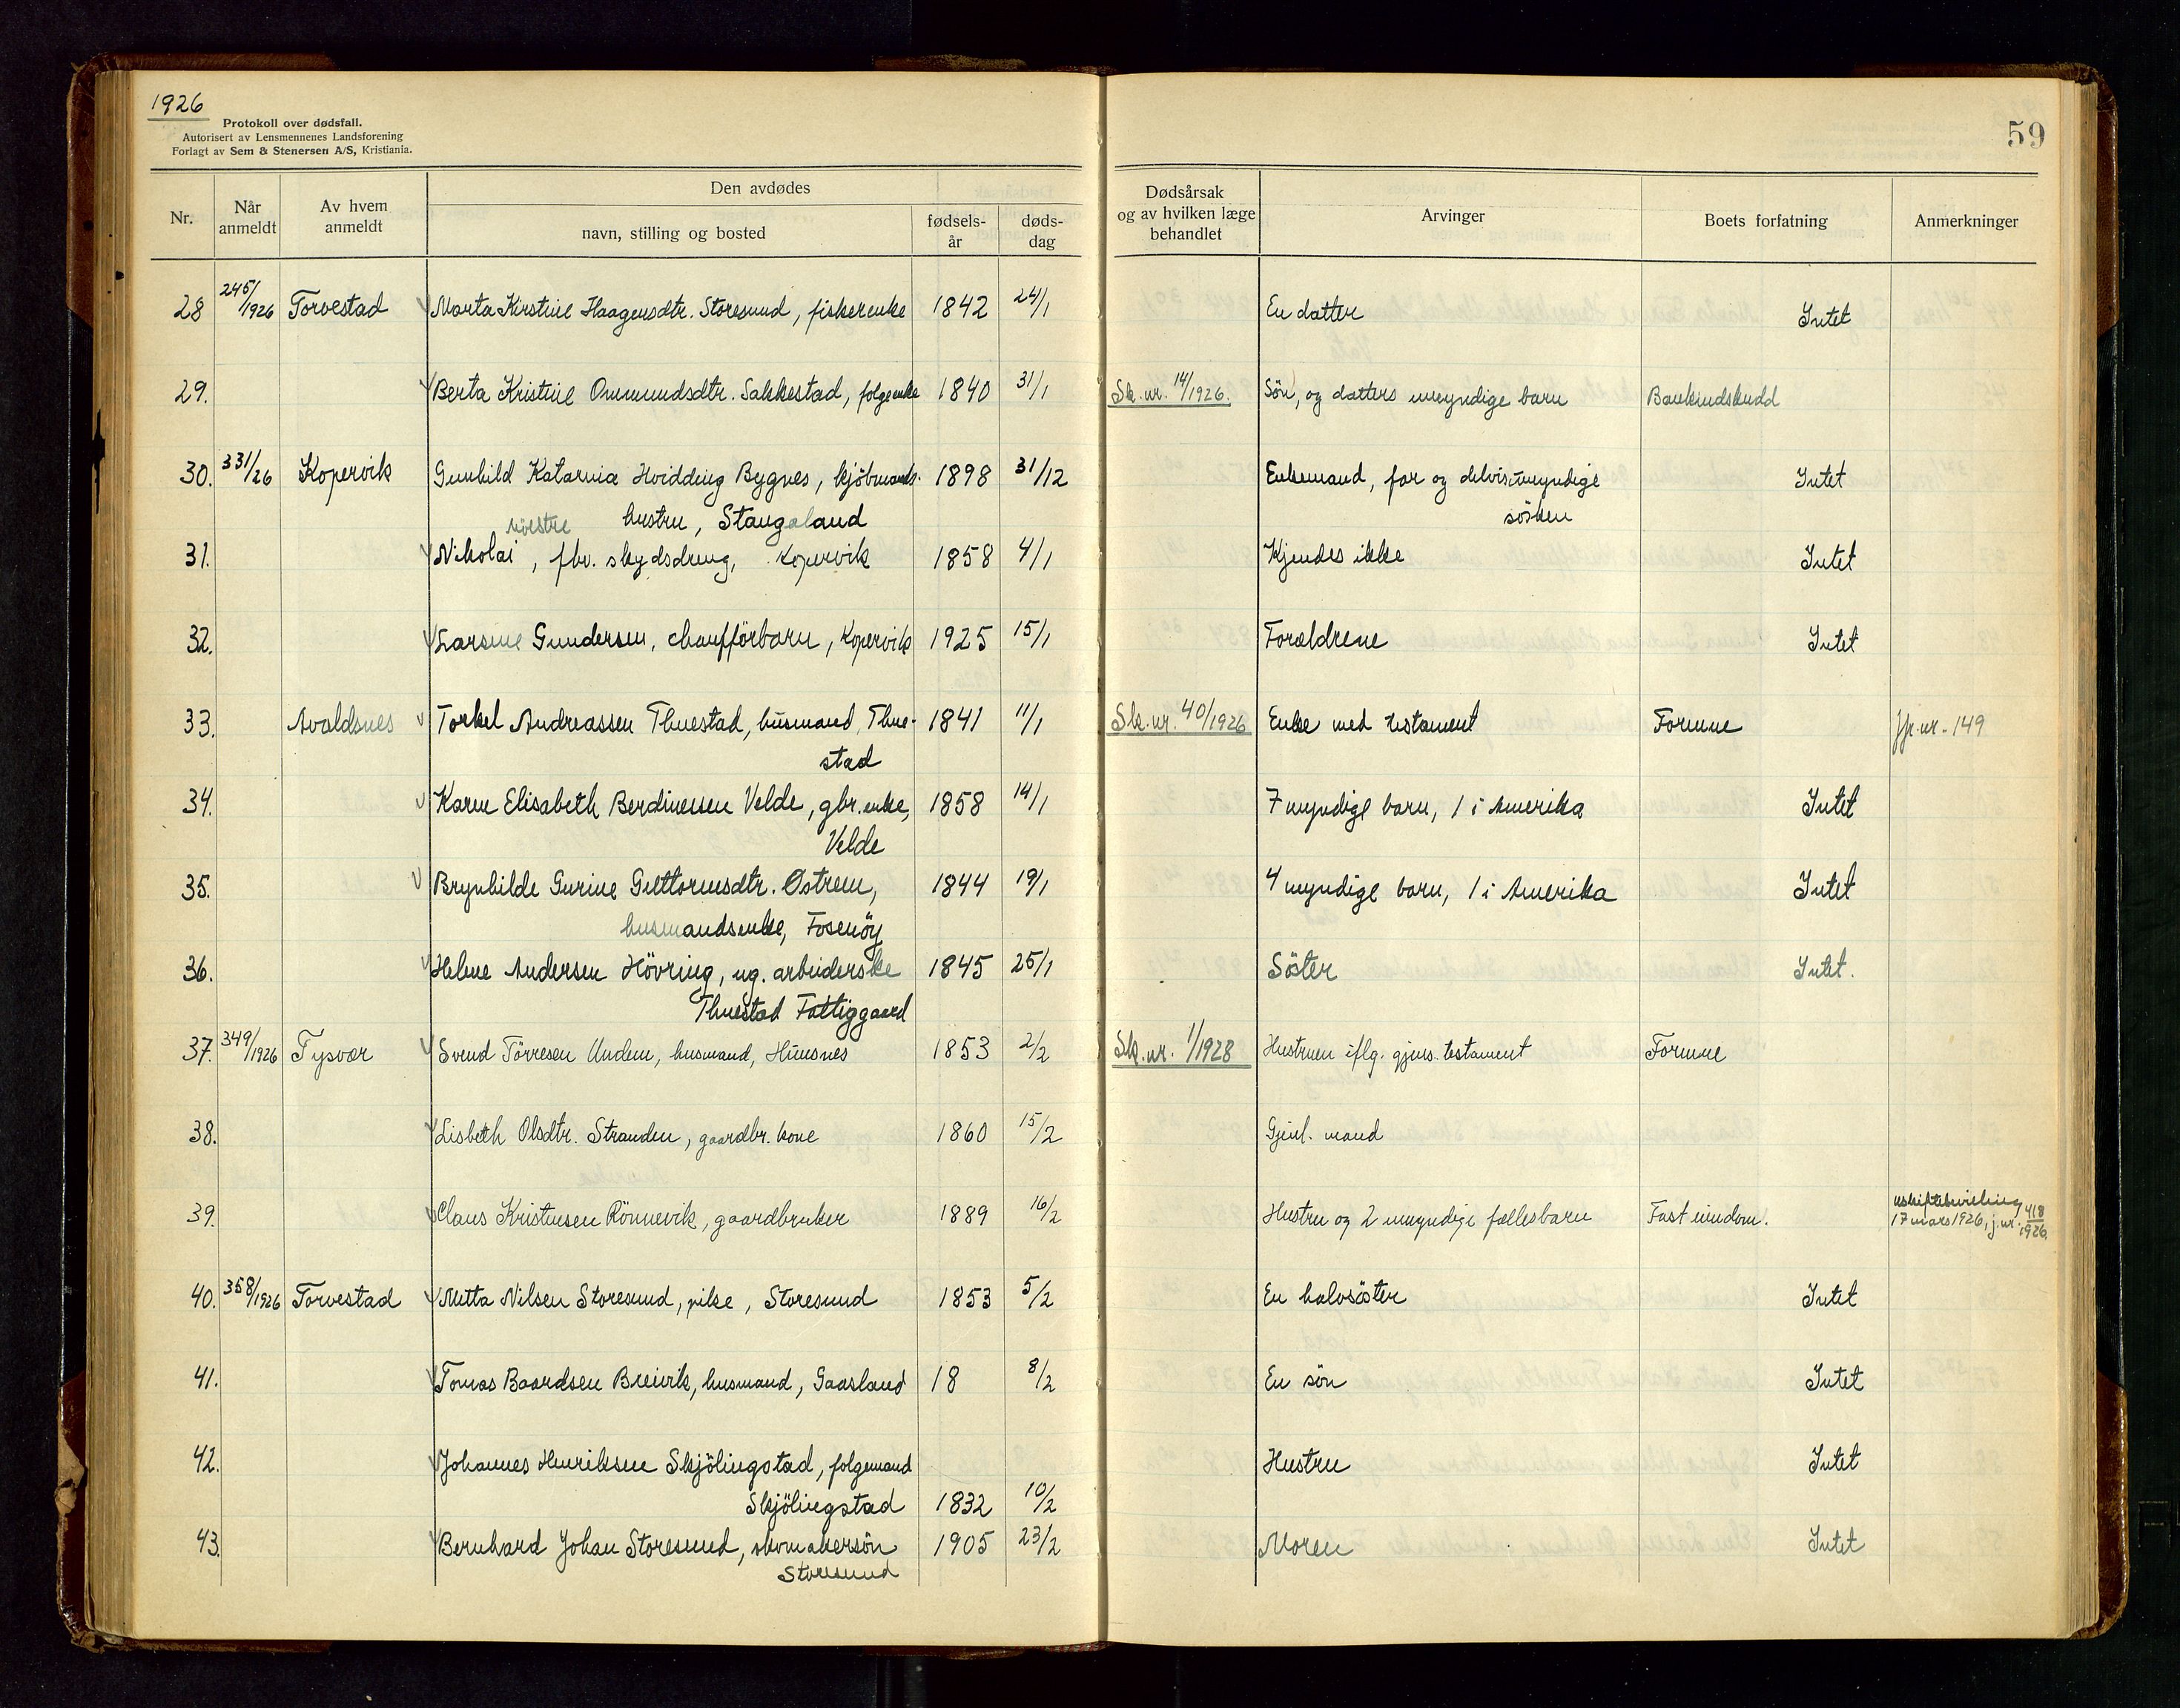 1926
Protokoll over dødsfall.
Autorisert av Lensmennenes Landsforening
Forlagt av Sem & Stenersen A/S, Kristiania.
59
Nr. Når anmeldt Av hvem anmeldt Den avdødes navn, stilling og bosted fødselsår dødsdag Dødsårsak og av hvilken læge behandlet Arvinger Boets forfatning Anmerkninger
28 245/1926 Torvestad Marta Kirstine Haagensdtr. Storesund, fiskerenke 1842 24/1 En datter Intet
29. Berta Kristine Ommundsdtr. Sakkestad, folgeenke 1840 31/1 Sk. nr. 14/1926. Sön, og datters umyndige barn Bankindskudd
30. 331/26 Kopervik Gunhild Katarina Hvidding Bygnes, kjöbmands- 1898 31/12 Enkemand, far og delvis umyndige Intet
hustru, Stangaland søsken
31. Nikolai, fhv. skydsdreng, Kopervik 1858 4/1 Kjendes ikke Intet
32. Larsine Gundersen, chaufförbarn, Kopervik 1925 15/1 Forældrene Intet
33. Avaldsnes Torkel Andreassen Thuestad, husmand, Thue- 1841 11/1 Sk. nr. 40/1926 Enke med testament Formue Jfr. nr. 149
stad
34. Karen Elisabeth Berdinessen Velde, gbr. enke, 1858 14/1 7 myndige barn, 1 i Amerika Intet
Velde
35. Brynhilde Gurine Guttormsdtr. Østrem, 1844 19/1 4 myndige barn, 1 i Amerika Intet
husmandsenke, Fosenöy
36. Helene Andersen Hövring, ug. arbeiderske 1845 25/1 Söster Intet.
Thuestad Fattiggaard
37. 349/1926 Tysvær Svend Törresen Undem, husmand, Hinsnes 1853 2/2 Sk. nr. 1/1928 Hustruen iflg. gjens. testament Formue
38. Lisbeth Olsdtr. Stranden, gaardbr. kone 1860 15/2 Gjenl. mand
39. Claus Kristensen Rönnevik, gaardbruker 1889 16/2 Hustru og 2 umyndige fællesbarn Fast eiendom. uskiftebevilling
17 mars 1926, j. nr. 418/1926
40. 358/1926 Torvestad Metta Nilsen Storesund, pike, Storesund 1853 5/2 En halvsöster Intet
41. Tomas Baardsen Breivik, husmand, Gaasland 18 8/2 En sön Intet
42. Johannes Henriksen Skjölingstad, folgemand Hustru Intet
Skjölingstad 1832 10/2
43. Bernhard Johan Storesund, skomakersön 1905 23/2 Moren Intet
Storesund